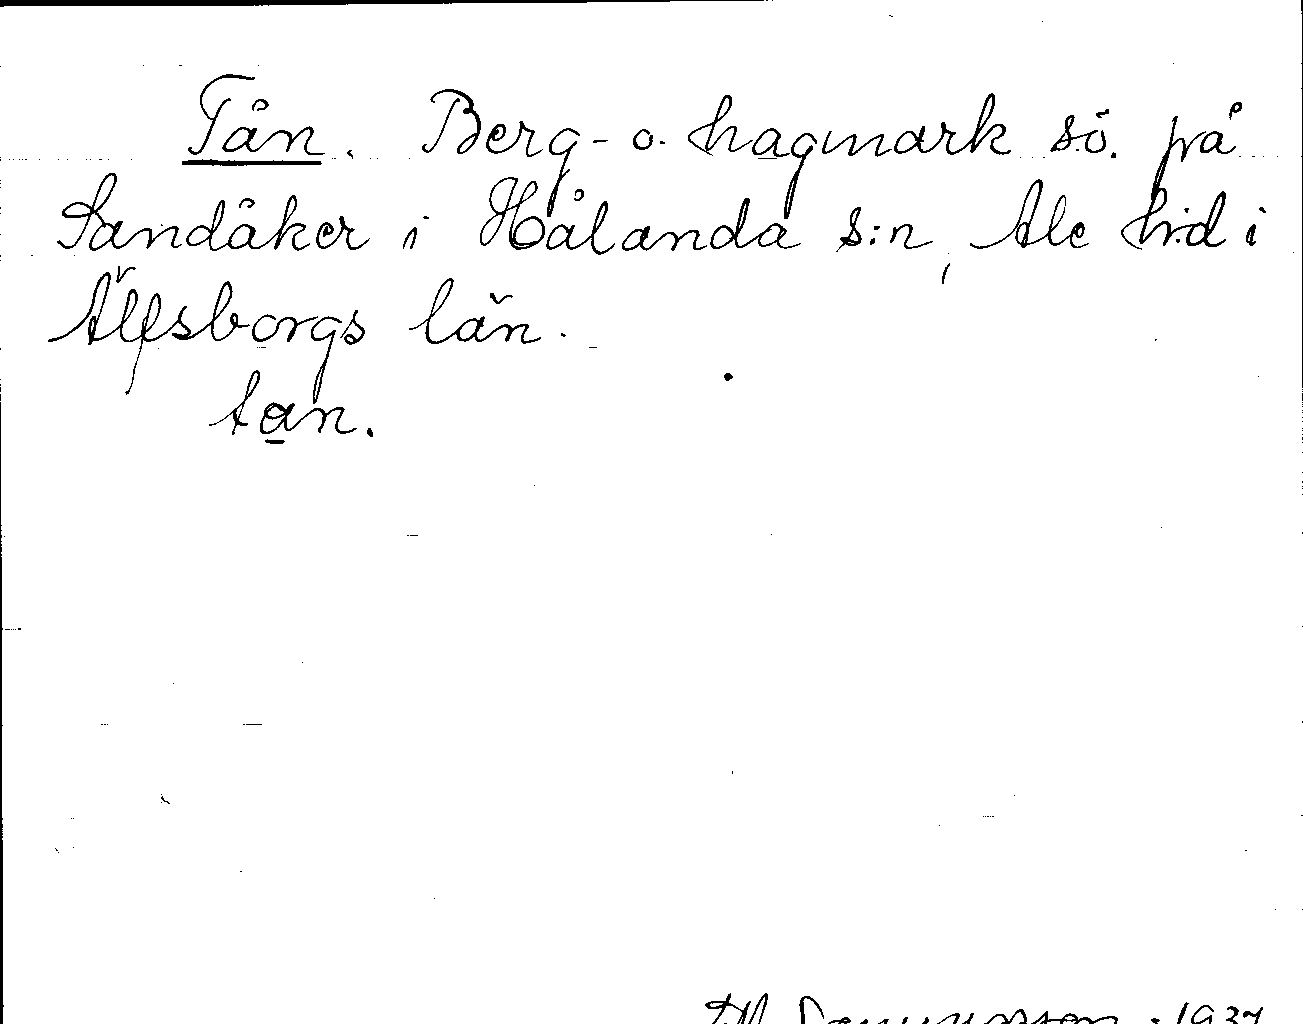 Tån. Berg- o. hagmark sö. på
Sandåker i Hålanda s:n, Ale h:d i
Älfsborgs län.
tan.
1937